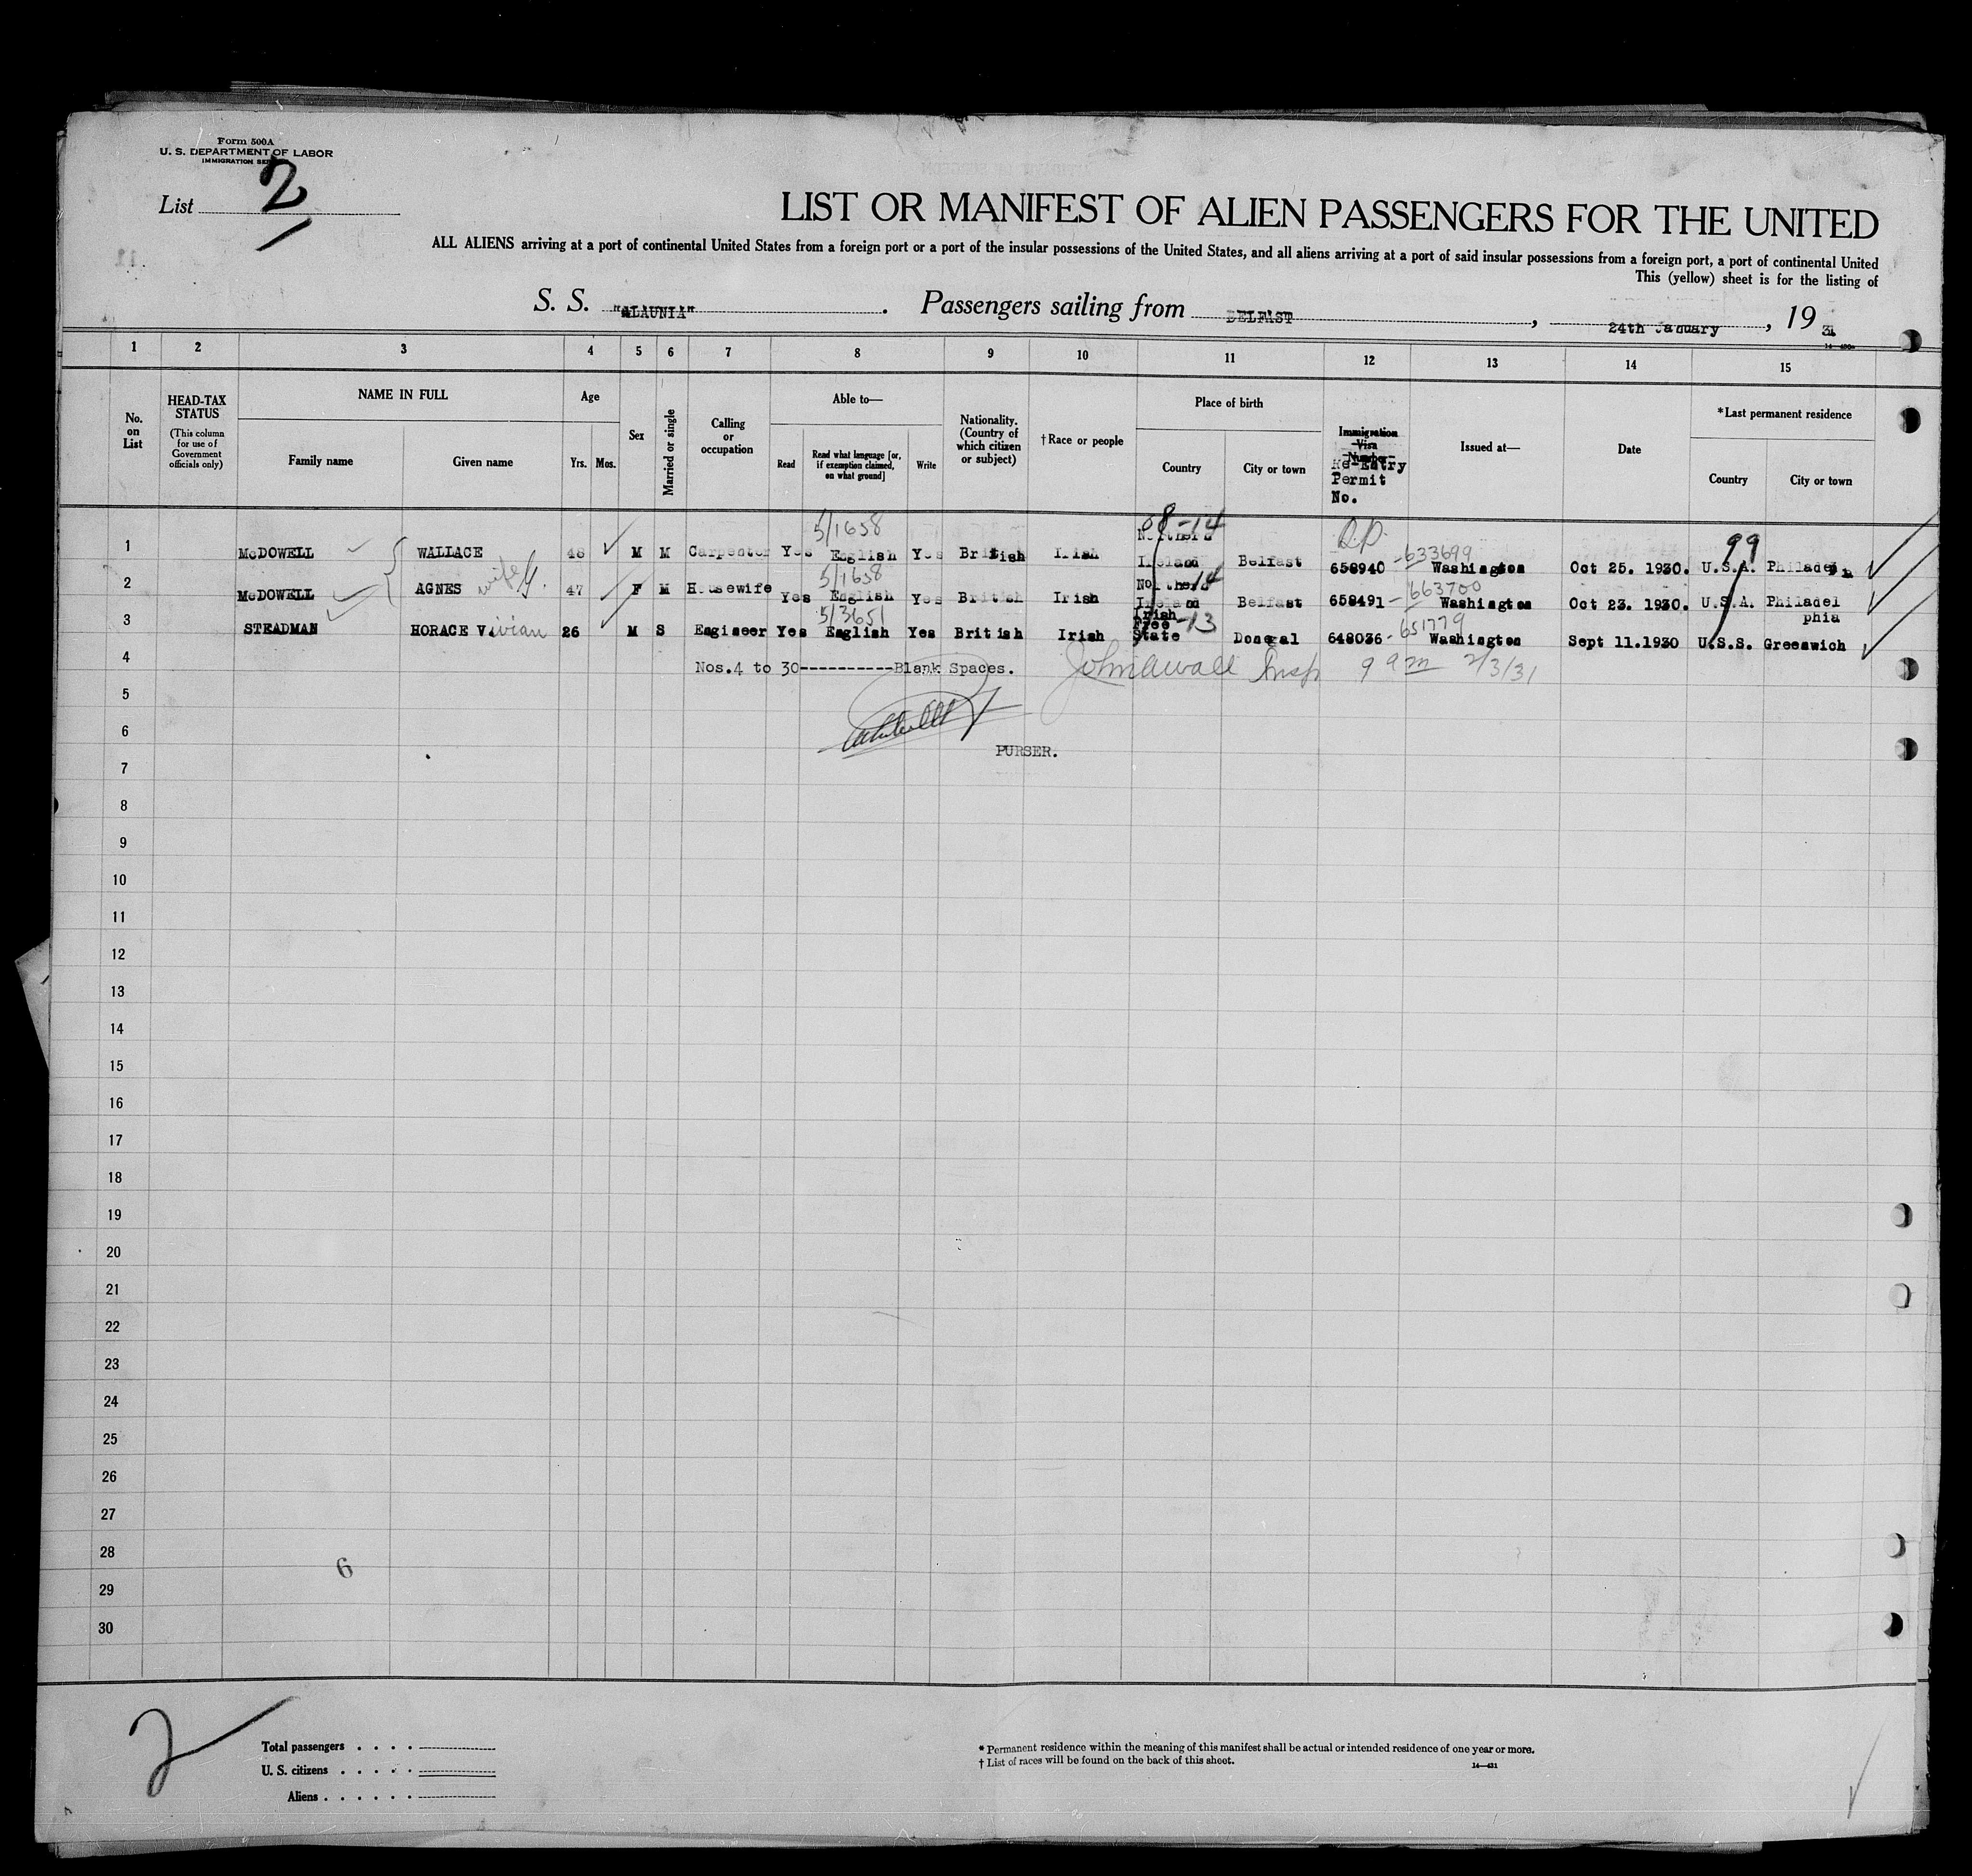 Form 500A
U. S. DEPARTMENT OF LABOR
IMMIGRATION
List 2
LIST OR MANIFEST OF ALIEN PASSENGERS FOR THE UNITED
ALL ALIENS arriving at a port of continental United States from a foreign port or a port of the insular possessions of the United States, and all aliens arriving at a port of said insular possessions from a foreign port, a port of continental United
This (yellow) sheet is for the listing of
S. S. "ALAUNIA". Passengers sailing from BELFAST, 24th January, 1931
1 2 3 4 5 6 7 8 9 10 11 12 13 14 15
No. on List
HEAD-TAX STATUS
(This column for use of Government officials only)
NAME IN FULL
Family name Given name
Age
Yrs. Mos.
Sex
Married or single
Calling or occupation
Able to—
Read
Read what language [or, if exemption claimed, on what ground]
Write
Nationality. (Country of which citizen or subject)
† Race or people
Place of birth
Country City or town
Immigration Visa Number
Re-Entry Permit No.
Issued at—
Date
*Last permanent residence
Country City or town
5/1658 -14 Q.P. 99
1 McDOWELL WALLACE 48 M M Carpenter Yes English Yes British Irish Northern Ireland Belfast 658940 -633699 Washington Oct 25. 1930. U.S.A. Philadel
5/1658 14
2 McDOWELL AGNES wife 47 F M Housewife Yes English Yes British Irish Northern Ireland Belfast 658491 -663700 Washington Oct 23. 1930. U.S.A. Philadel phia
5/3651 -13
3 STEADMAN HORACE Vivian 26 M S Engineer Yes English Yes British Irish Irish Free State Donegal 648036 -651779 Washington Sept 11.1930 U.S.S. Greenwich
4 Nos.4 to 30----------Blank Spaces. John Awall Insp 9 am 2/3/31
5
6
PURSER.
7
8
9
10
11
12
13
14
15
16
17
18
19
20
21
22
23
24
25
26
27
28
6
29
30
2
Total passengers . . . .
U. S. citizens . . . . .
Aliens . . . . . .
* Permanent residence within the meaning of this manifest shall be actual or intended residence of one year or more.
† List of races will be found on the back of this sheet.
14—431